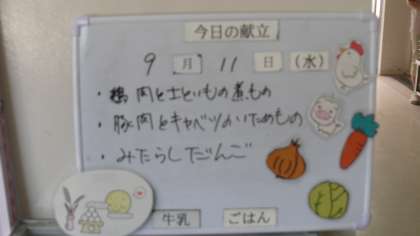 今日の献立
9月11日(水)
・鶏肉と土といもの煮もの
・豚肉とキャベツのいためもの
・みたらしだんご
牛乳 ごはん